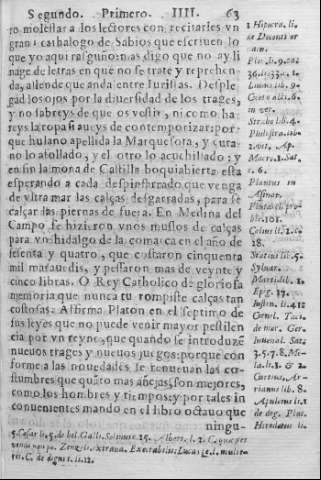 Segundo. Primero. IIII. 63
ro molestar a los lectores con recitarles vn
gran cathalogo de Sabios que escriuen lo
que yo aqui rasguño: mas digo que no ay li
nage de letras en que no se trate y reprehen
da, allende que anda entre Iuristas. Desple
gad los ojos por la diuersidad de los trages,
y no sabreys de que os vestir, ni como ha
reys la ropa si aueys de contemporizar: por
que fulano apellida la Marquesota, y çuta-
no lo afollado, y el otro lo acuchillado; y
en fin la mona de Castilla boquiabierta esta
esperando a cada despinsarrado que venga
de vltra mar las calças desgarradas, para se
calçar las piernas de fuera. En Medina del
Campo se hizieron vnos muslos de calças
para vn hidalgo de la comarca en el año de
setenta y quatro, que costaron cincuenta
mil marauedis, y pessaron mas de veynte y
cinco libras. O Rey Catholico de gloriosa
memoria que nunca tu rompiste calças tan
costosas. Affirma Platon en el septimo de
sus leyes que no puede venir mayor pestilen
cia por vn reyno, que quando se introduzẽ
nueuos trages y nueuos juegos: porque con
forme a las nouedades se renueuan las co-
stumbres que quãto mas añejas, son mejores,
como los hombres y los tiempos; y por tales in
conuenientes mando en el libro octauo que
ningu-
1 Hipocr. li.
de Decenti or
Plin. li. 9.
36. li. 33.
li. 9.
Strabo lib. 4.
Philostra. lib.
2. vit. Ap.
Macro. 3. Sat.
c. 6.
Plautus in
Asinar.
pro-
ble. 101.
18.
Statius li. 5.
Syluar.
Martial lib. 2
Epg. 17.
Iustin. li. 41
Corneli. Taci.
de mor. Ger-
Iuuenal. Sat.
3. 5. 7. 8. Me-
la. li. 3. & 2.
Curtius, Ar-
rianus lib.
8. Apuleius li.
de dog. Plat.
Herodotus li.
5. Cesar li. 5. de bel. Gall. Solinus c. 25.